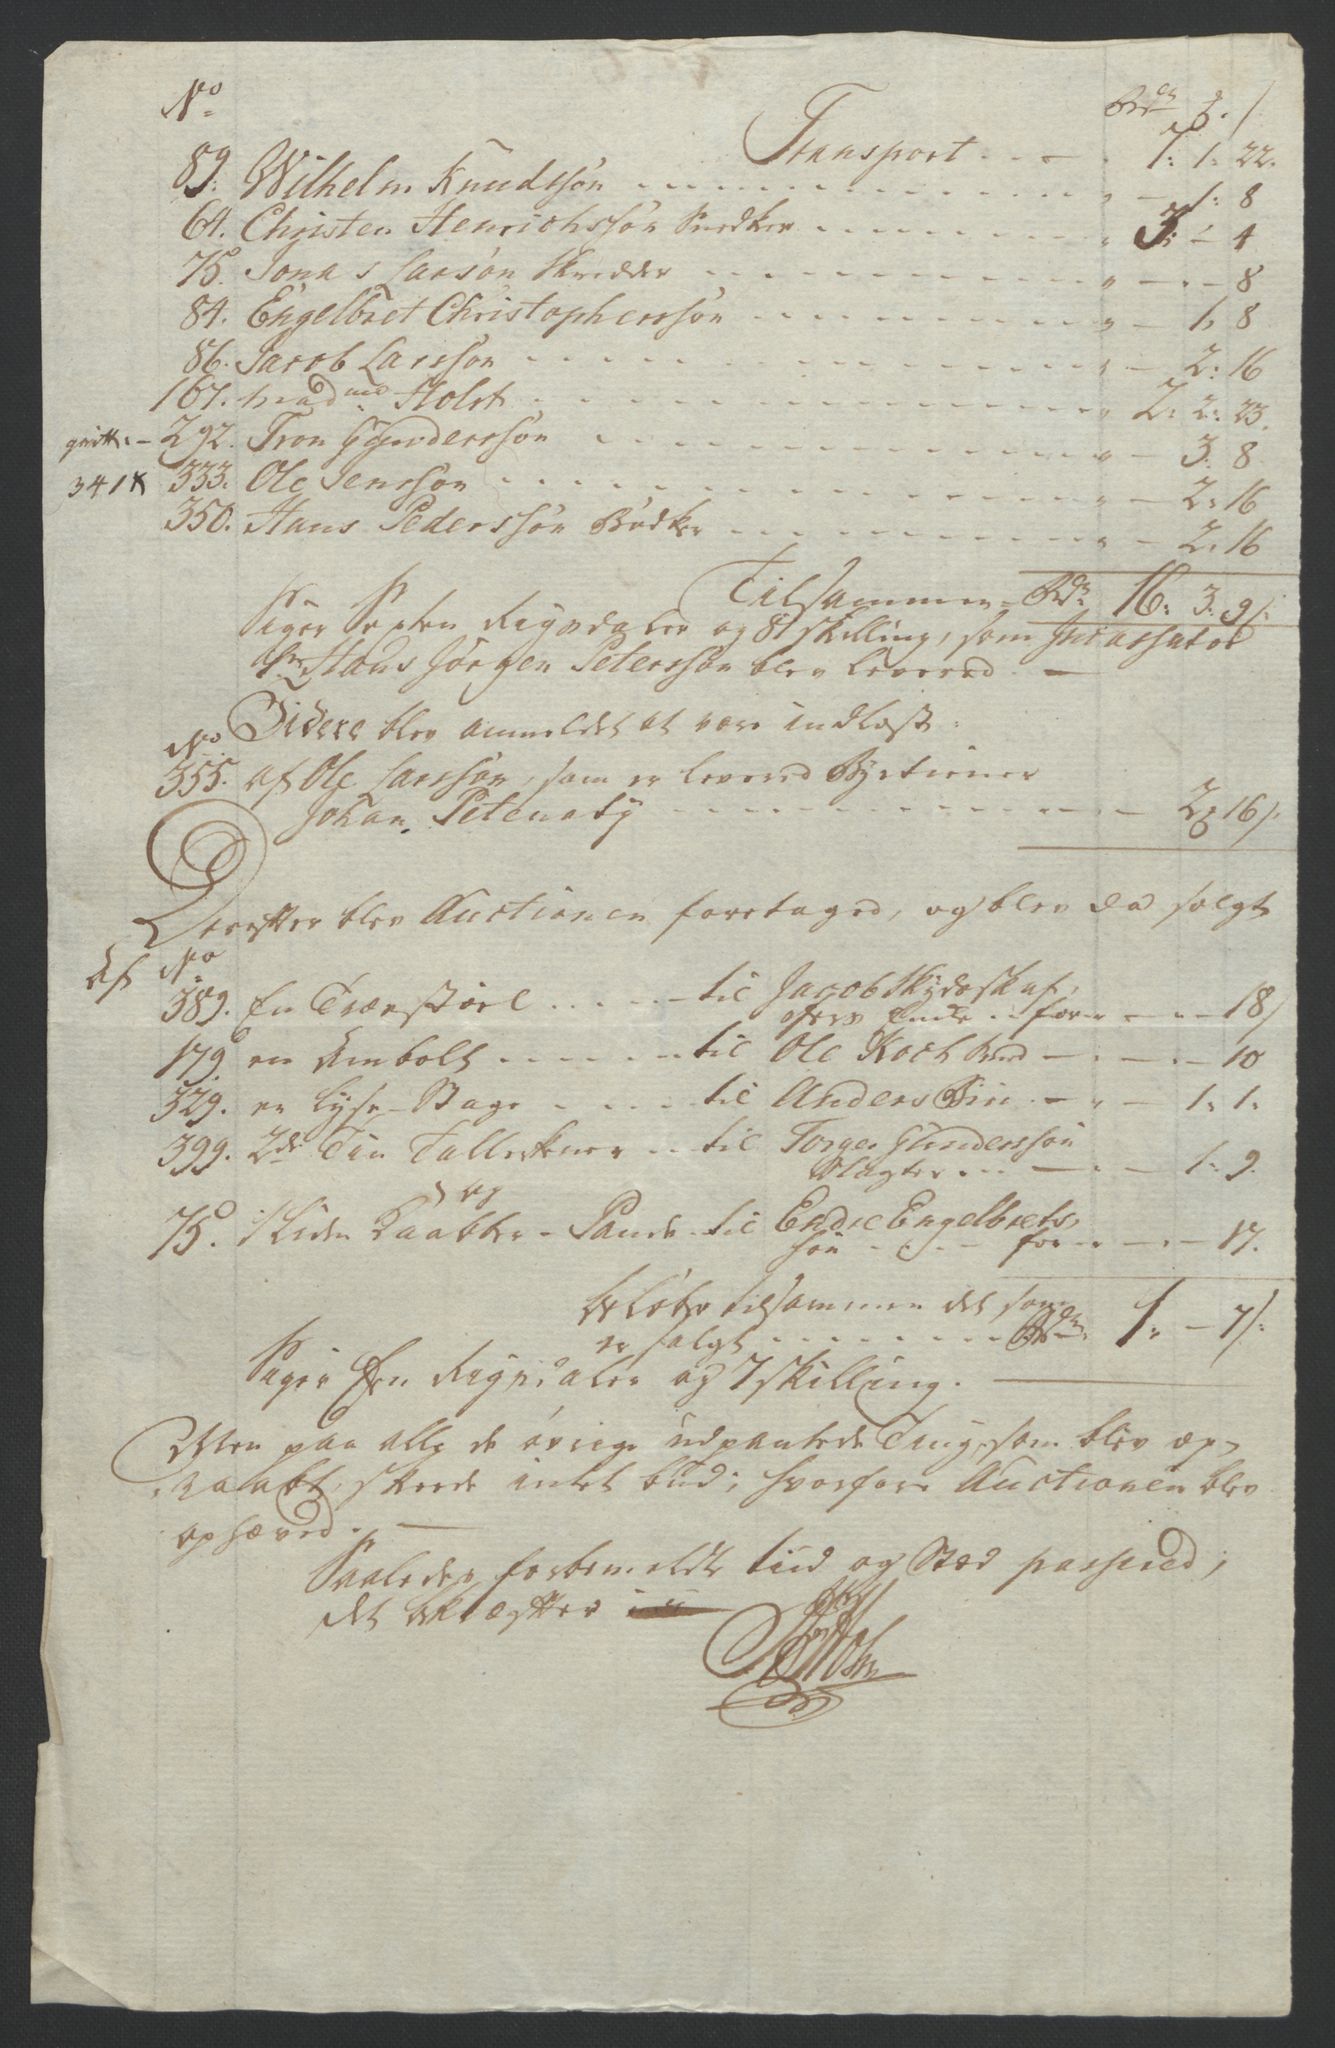 No Rdr ƺ. /
Transport . . . . 7: 1: 22.
89. Wilhelm Knudssøn . . . . " — 1: 8
64. Christen Henrichssøn Snedker . . . . " 3: — 4
75. Jonas Larsøn Skredder . . . . " — . — 8
84. Engelbret Christopherssøn . . . . " — 1: 8
86. Jacob Larssøn . . . . " — 2: 16
167. Mad me Holst . . . . " 2: 2: 23.
qvitt: — 292. Tron Gundersøn . . . . " — 3: 8
341 333. Ole Jenssøn . . . . " — 2: 16
350. Hans Pederssøn Bødker . . . . " — 2: 16
Tilsammen Rdr 16: 3: 9/:
Siger Sexten Rigsdaler og 81 skilling, som Incassator
Hr Hans Jørgen Peterssøn blev leveret. —
Videre blev anmeldet at være indløst:
No
355. af Ole Larssøn, som er levered Byetiener
Johan Petenaty . . . . — 2 ƺ 16/:
Derefter blev Auctionen foretaged, og blev da solgt
Af No
389. En Træestoel . . . . til Jacob Skydeskaf,
for . . — . — 18/
179. en Ambolt . . . . til Ole Koch Smed — . — . — 10
329. en Lyse-Stage . . . . til Anders Bin — " — 1: 1:
399. 2de Tin Tallerkener . . til Torger Gunderssøn
Slagter . . . — . — 1: 9.
75. 1 Liden Kaabber-Pande til Endre Engelbrets-
søn . . . — for — . — 17.
beløber tilsammen det som
er solgt . . . . Rdr 1: — 7/:
Siger Een Rigsdaler og 7 skilling. —
Men paa alle de øvrige udpantede Ting, som blev op-
raabt, skeede intet bud; hvorfore Auctionen blev
ophæved. —
Saaledes forbemeldte tiid og Stæd passered;
det bekræfter